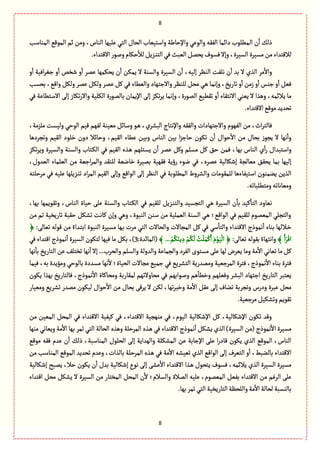 8
ذلك أن المطلوب دائما الفقه والوعي والإحاطة واستيعاب الحال التي عليها الناس، ومن ثم الموقع المناسب
للاقتداء من مسيرة السيرة، وإلا فسوف يحصل العبث في التنزيل للأحكام وصور الاقتداء.
والأمر الذي لا بد أن نلفت النظر إليه، أن السيرة والسنة لا يمكن أن يحكمها عصر أو شخص أو جغرافية أو
فعل أو جنس أو زمن أو تاريخ، وإنما هي محل للنظر والاجتهاد والعطاء في كل عصر ولكل عصر ولكل واقع، بحسب
ما يلائمه، وهذا لا يعني الانتقاء أو تقطيع الصورة، وإنما يرتكز إلى الإيمان بالصورة الكلية والارتكاز إلى الاستطاعة في
تحديد موقع الاقتداء.
فالتراث، من الفهوم والاجتهادات والفقه والإنتاج البشري، هو وسائل معينة لفهم قيم الوحي وليست ملزمة،
وأنها لا يجوز بحال من الأحوال أن تكون حاجزا بين الناس وبين عطاء القيم، وحائلا دون خلود القيم وتجردها
واستبدال رأي الناس بها، فمن حق كل مسلم وكل عصر أن يستلهم هذه القيم في الكتاب والسنة والسيرة ويرتكز
إليها بما يحقق معالجة إشكالية عصره، في ضوء رؤية فقهية بصيرة خاضعة للنقد والمراجعة من العلماء العدول،
الذين يضمنون استيفاءها للمقومات والشروط المطلوبة في النظر إلى الواقع وإلى القيم المراد تنزيلها عليه في مرحلته
ومعاناته ومتطلباته.
نعاود التأكيد بأن السيرة هي التجسيد والتنزيل للقيم في الكتاب والسنة على حياة الناس، وتقويمها بها،
والتجلي المعصوم للقيم في الواقع؛ هي السنة العملية من سنن النبوة، وهي وإن كانت تشكل حقبة تاريخية تم من
خلالها بناء أنموذج الاقتداء والتأسي في كل المجالات والحالات التي مرت بها مسيرة النبوة ابتداءً من قوله تعالى: ﴿
اقْرَأْ ﴾ وانتهاءً بقوله تعالى: ﴿ الْيَوْمَ أَكْمَلْتُ لَكُمْ دِينَكُمْ ... ﴾ (المائدة:3)، بكل ما فيها لتكون السيرة أنموذج اقتداء في
كل ما تعاني الأمة وما يعرض لها على مستوى الفرد والجماعة والدولة والسلم والحرب... إلا أنها تختلف عن التاريخ بأنها
فترة بناء الأنموذج، فترة المرجعية ومصدرية التشريع في جميع مجالات الحياة؛ لأنها مسددة بالوحي ومؤيدة به، فيما
يعتبر التاريخ اجتهاد البشر وفعلهم وخطأهم وصوابهم في محاولاتهم لمقاربة ومحاكاة الأنموذج، فالتاريخ بهذا يكون
محل عبرة ودرس وتجربة تضاف إلى عقل الأمة وخبرتها، لكن لا يرقى بحال من الأحوال ليكون مصدر تشريع ومعيار
تقويم وتشكيل مرجعية.
وقد تكون الإشكالية، كل الإشكالية اليوم، في منهجية الاقتداء، في كيفية الاقتداء في المحل المعين من
مسيرة الأنموذج (من السيرة) الذي يشكل أنموذج الاقتداء في هذه المرحلة وهذه الحالة التي تمر بها الأمة ويعاني منها
الناس، الموقع الذي يكون قادرا على الإجابة عن المشكلة والهداية إلى الحلول المناسبة، ذلك أن عدم فقه موقع
الاقتداء بالضبط، أو التعرف إلى الواقع الذي تعيشه الأمة في هذه المرحلة بالذات، وعدم تحديد الموقع المناسب من
مسيرة السيرة الذي يلائمه، فسوف يتحول هذا الاقتداء الأعشى إلى نوع إشكالية بدل أن يكون حلا، يصبح إشكالية
على الرغم من الاقتداء بفعل المعصوم، عليه الصلاة والسلام؛ لأن المحل المختار من السيرة لا يشكل محل اقتداء
بالنسبة لحالة الأمة واللحظة التاريخية التي تمر بها.
8